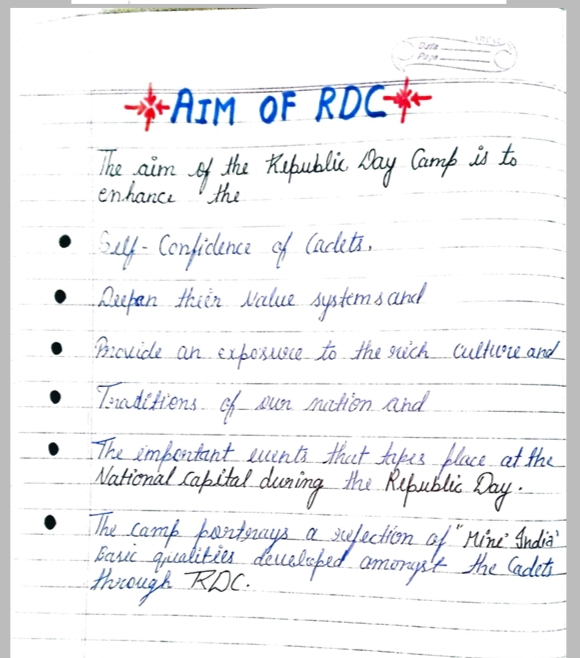 Date
Page
AIM OF RDC
The aim of the Republic Day Camp is to
enhance the
• Self-Confidence of Cadets.
• Deepen their value systems and
• Provide an exposure to the rich culture and
• Traditions of our nation and
• The important events that takes place at the
National capital during the Republic Day.
• The camp portrays a refection of "Mini India"
Basic qualities developed amongst the Cadets
through RDC.